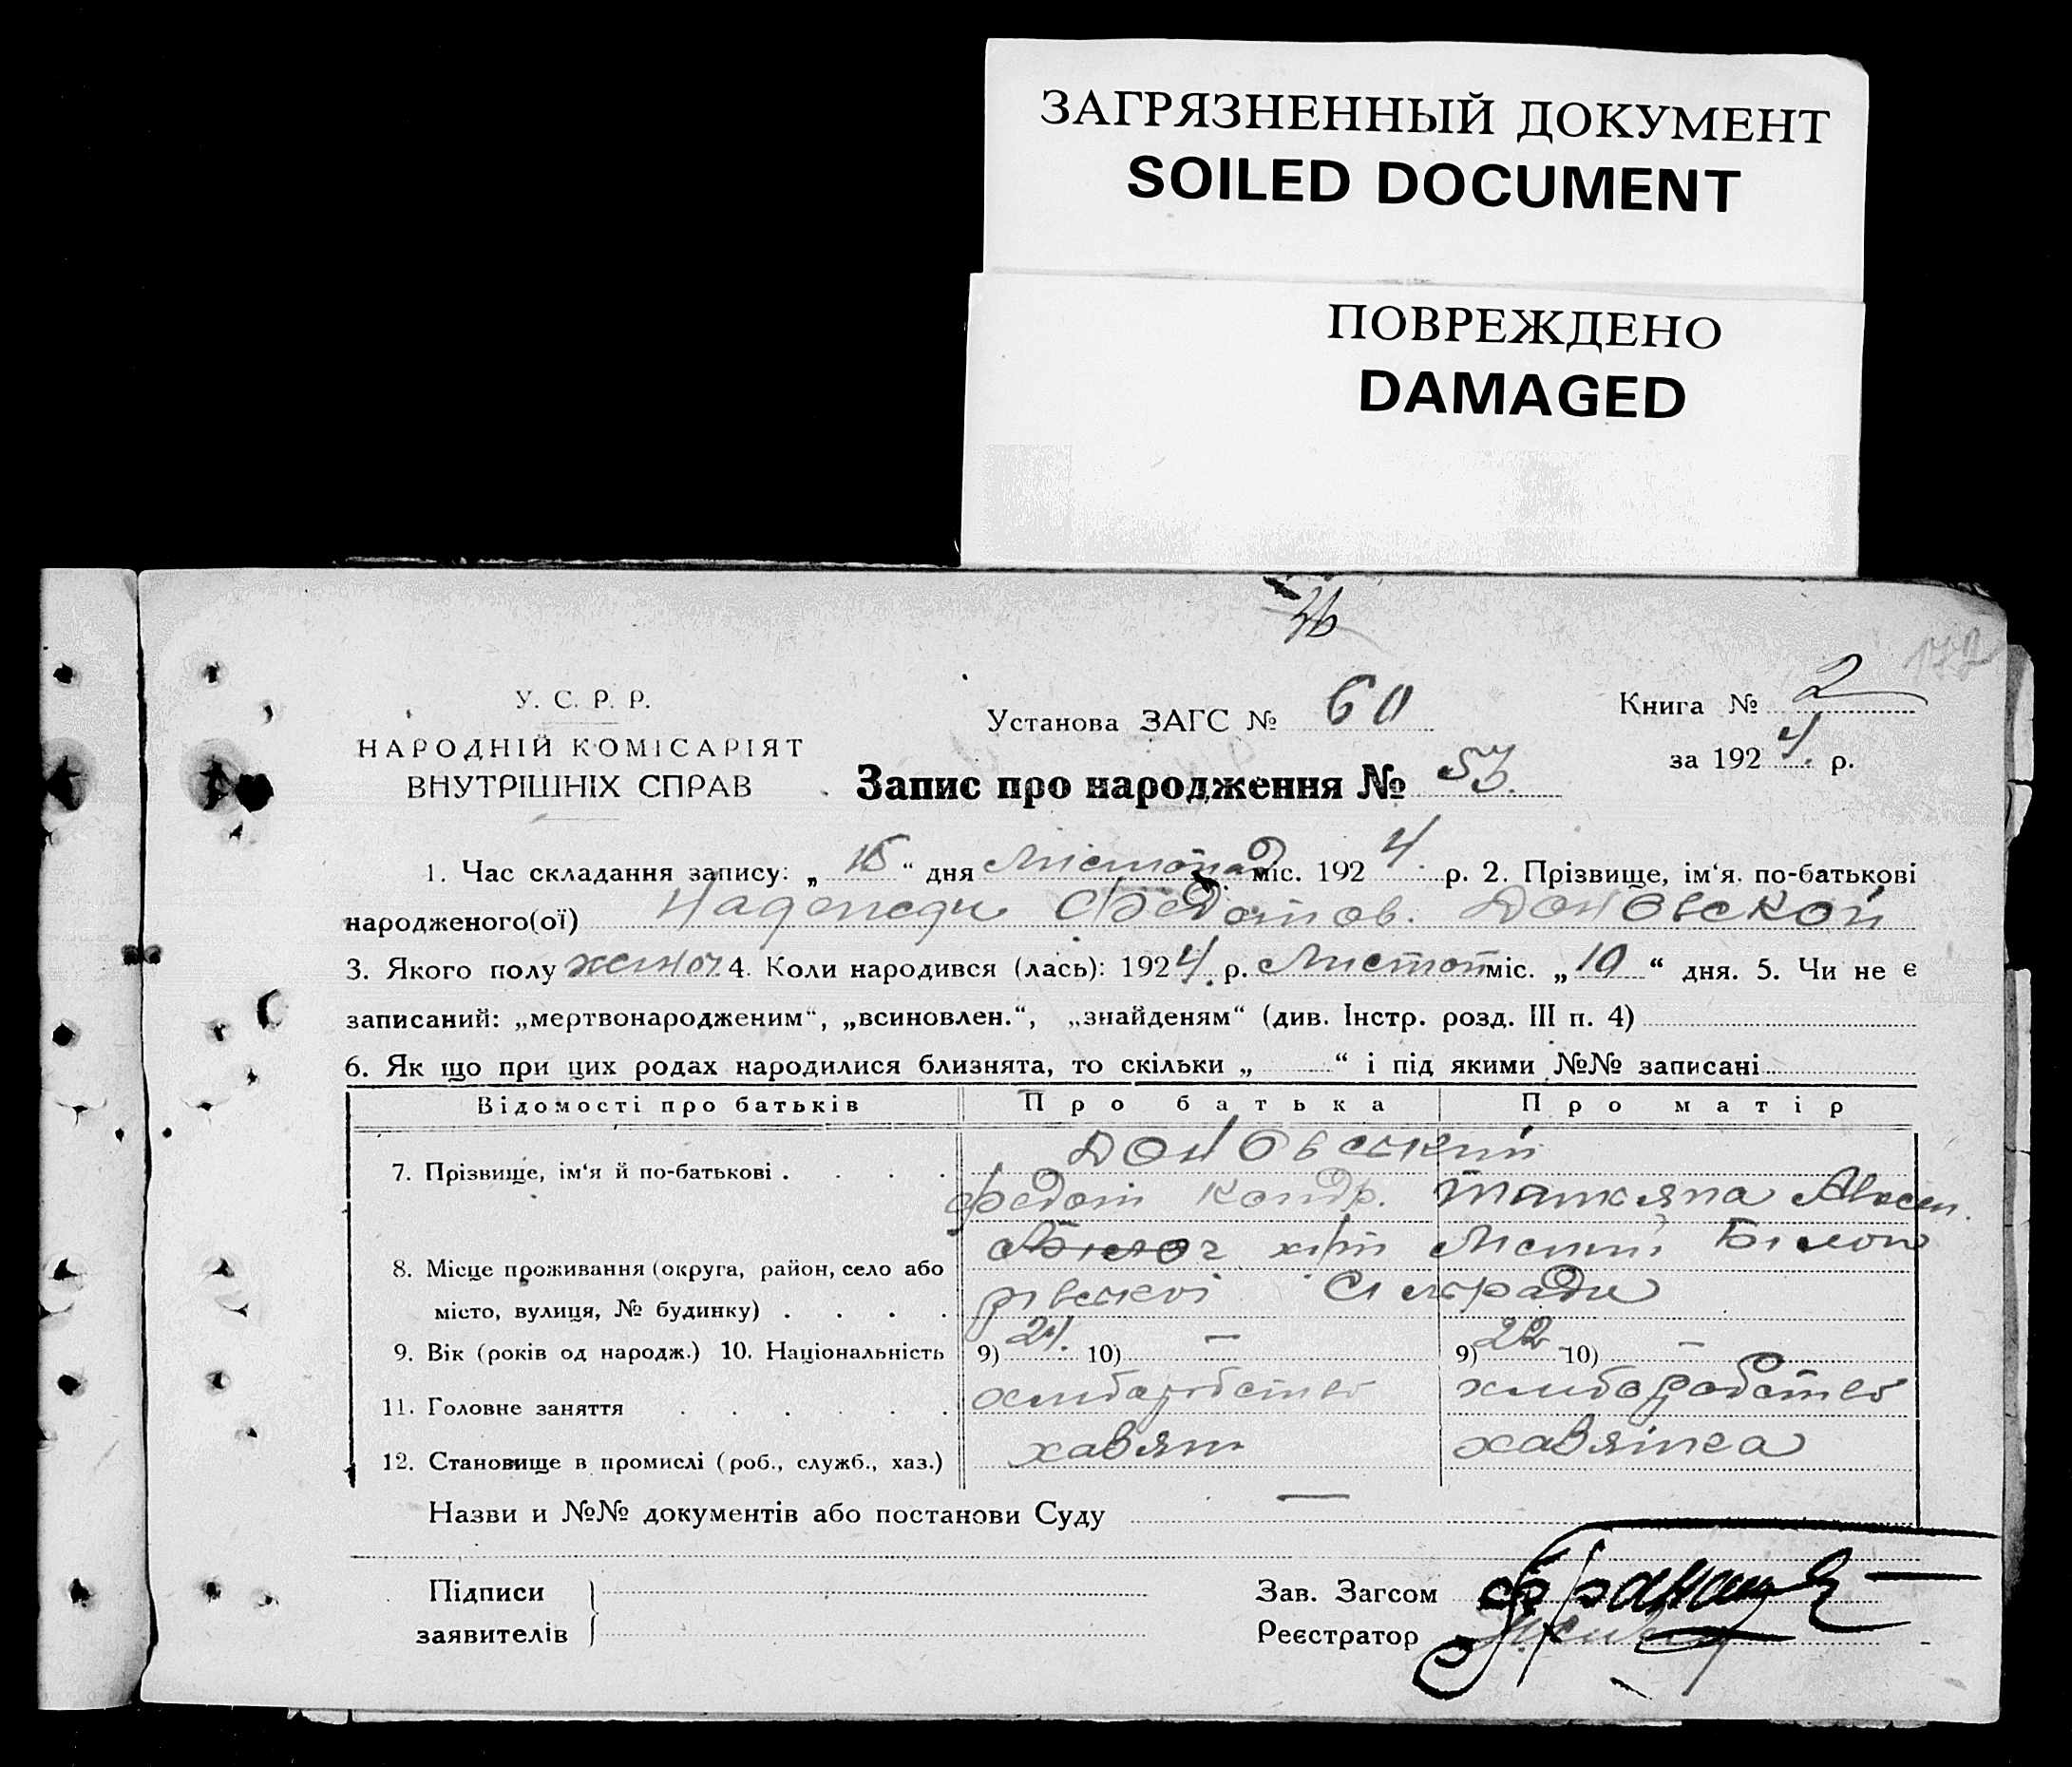 ЗАГРЯЗНЕННЫЙ ДОКУМЕНТ
SOILED DOCUMENT
ПОВРЕЖДЕНО
DAMAGED
У. С. Р. Р.
НАРОДНІЙ КОМІСАРІЯТ
ВНУТРІШНІХ СПРАВ
Установа ЗАГС № 60
Книга № 2
за 1924 р.
Запис про народження № 53.
1. Час складання запису: „ 15 “ дня Листопад міс. 1924. р. 2. Прізвище, ім‘я. по-батькові
народженого(ої) Федотов.
3. Якого полу жиноч. 4. Коли народився (лась): 1924. р. Листоп міс. „ 10 “ дня. 5. Чи не є
записаний: „мертвонародженим“, „всиновлен.“, „знайденям“ (див. Інстр. розд. III п. 4)
6. Як що при цих родах народилися близнята, то скільки „ “ і під якими №№ записані
Відомості про батьків Про батька Про матір
7. Прізвище, ім‘я й по-батькові .
Федот Кондр.
8. Місце проживання (округа, район, село або
місто, вулиця, № будинку) . рівскої Сільради
9. Вік (років од народж.) 10. Національність 9) 24. 10) — 9) 22 10) —
11. Головне заняття хлиборобство хлиборобство
12. Становище в промислі (роб., служб., хаз.) хазяін хазяйка
Назви и №№ документів або постанови Суду —
Підписи
заявителів
Зав. Загсом
Реєстратор